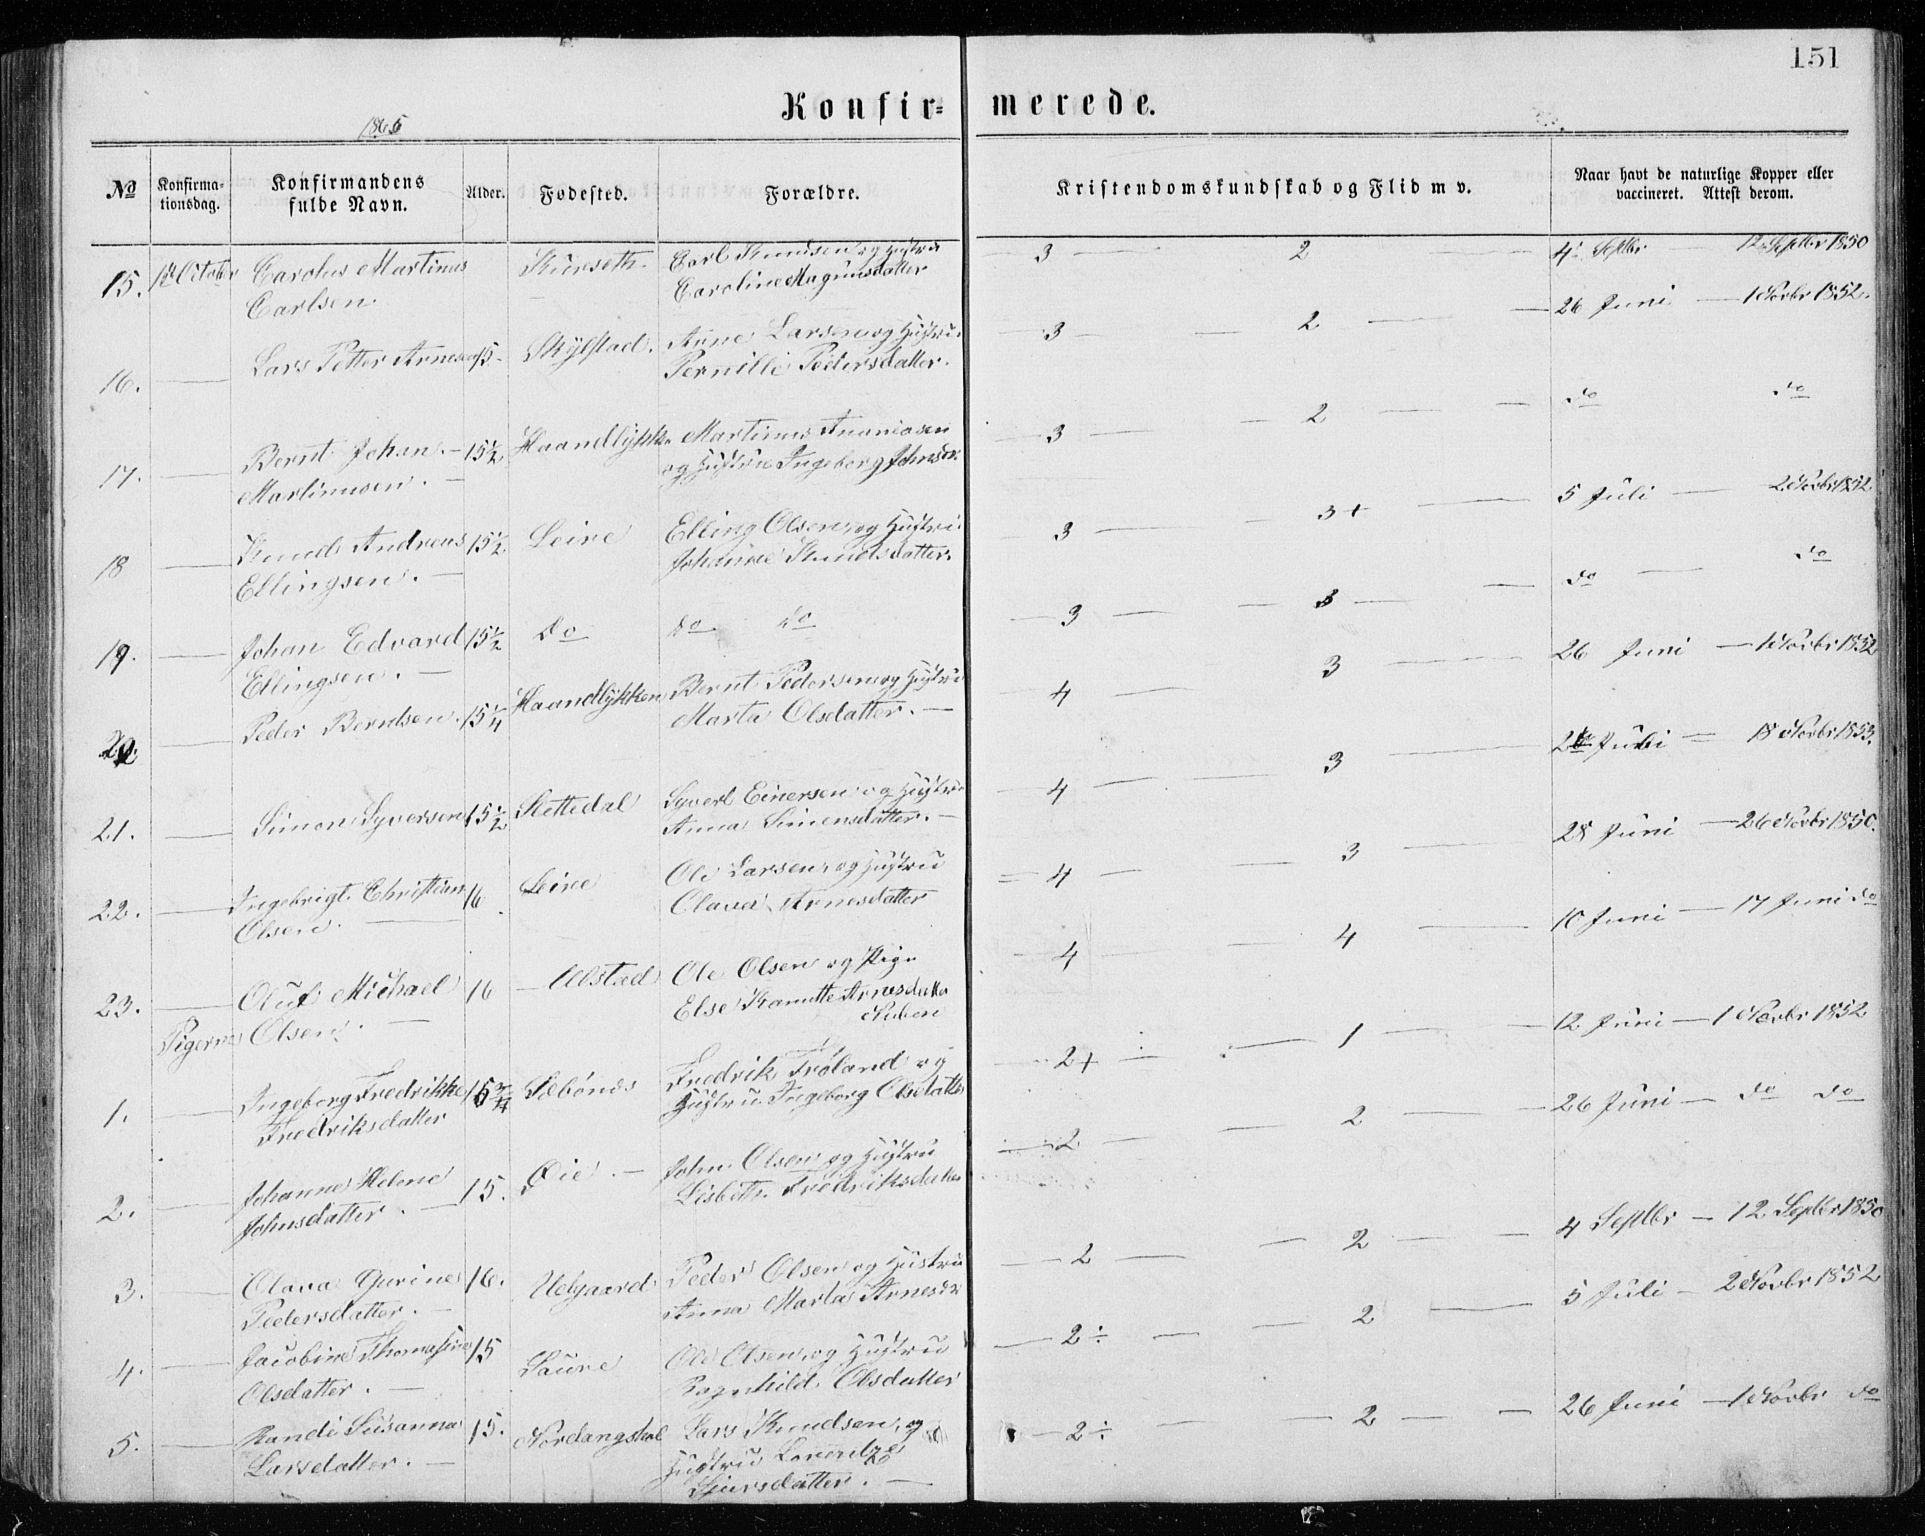 151
Konfir=merede.
1865
No Konfirma-tionsdag. Konfirmandens fulde Navn. Alder. Fødested. Forældre. Kristendomskundskab og Flid m v. Naar havt de naturlige Kopper eller vaccineret. Attest derom.
15. 1st October Carolus Martinus Kurseth. Carl Knudsen og Hustru 3 — 2 4 Septbr — 12 Septbr 1850
Carlsen. Caroline Magnusdatter
16. — Lars Petter Arnesen 15. Skylstad. Arne Larsen og Hustru 3 — 2 — 26 Juni — 1 Novbr 1852.
Pernille Pedersdatter.
17. — Bernt Johan — 15½ Haandlykk. Martinus Ananiasen 3 — 2 — do do
Martinusen. — og Hustru Ingeborg Johnsdr.
18 — Knud Andreas 15½ Leire Elling Olsen og Hustru 3 — 3+ — 5 Juli — 2 Novbr 1852
Ellingsen. — Johanne Knudsdatter.
19. — Johan Edvard 15½ do do do 3 — 3 — do — do
Ellingsen. —
20. — Peder Berntsen. 15¼ Haandlykken Bernt Pedersen og Hustru 4 — 3 — 26 Juni — 1 Novbr 1852
Marta Olsdatter. —
21. — Simon Syversen 15½ Slettedal Syvert Einersen og Hustru 4 — 3 — Juli — 18 Novbr 1853.
Anna Simensdatter. —
22. — Ingebrigt Christian 16. Leire Ole Larsen og Hustru 4 — 3 — 28 Juni — 26 Novbr 1850.
Olsen. — Olava Arnesdatter
23. — Oluf Michael 16 — Ulstad Ole Olsen og Pige 4 — 4 — 10 Juni — 17 Juni do
Pigerne Olsen. — Else Kanutte Arnesdatter
1. — Ingeborg Fredrikke 15¾ Sæbønes Fredrik Frøland og 2+ — 1 — 12 Juni — 1 Novbr 1852
Fredriksdatter Hustru Ingeborg Olsdatter
2. — Johanne Helene 15. Øie. — John Olsen og Hustru 2 — 2 — 26 Juni — do do
Johnsdatter. — Lisbeth Fredriksdatter
3. — Olava Gurine 16. Uelgaard Peder Olsen og Hustru 2 — 2 — 4 Septbr — 12 Septbr 1850
Pedersdatter. — Anna Marta Arnesdr
4. — Jacobine Thomasine 15 Saure Ole Olsen og Hustru 2÷ — 2 — 5 Juli — 2 Novbr 1852
Olsdatter. — Ragnhild Olsdatter
5. — Randi Susanna 15. Nordangsdal Lars Knudsen og 2÷ — 2 — 26 Juni — 1 Novbr do
Larsdatter. — Hustru
Sjursdatter. —